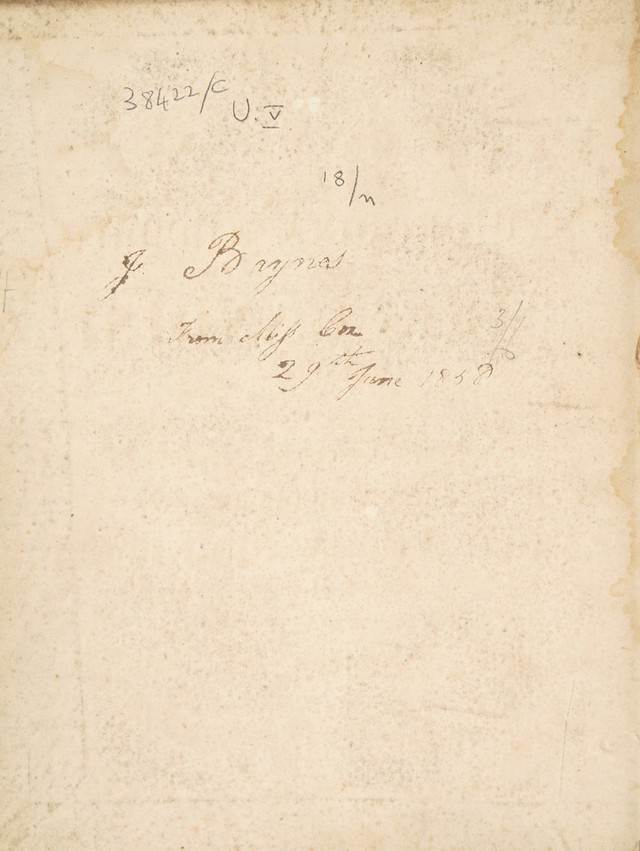 38422/C
U. V
18/n
J Baynes
From Miss Cox
29th June 1858
3/